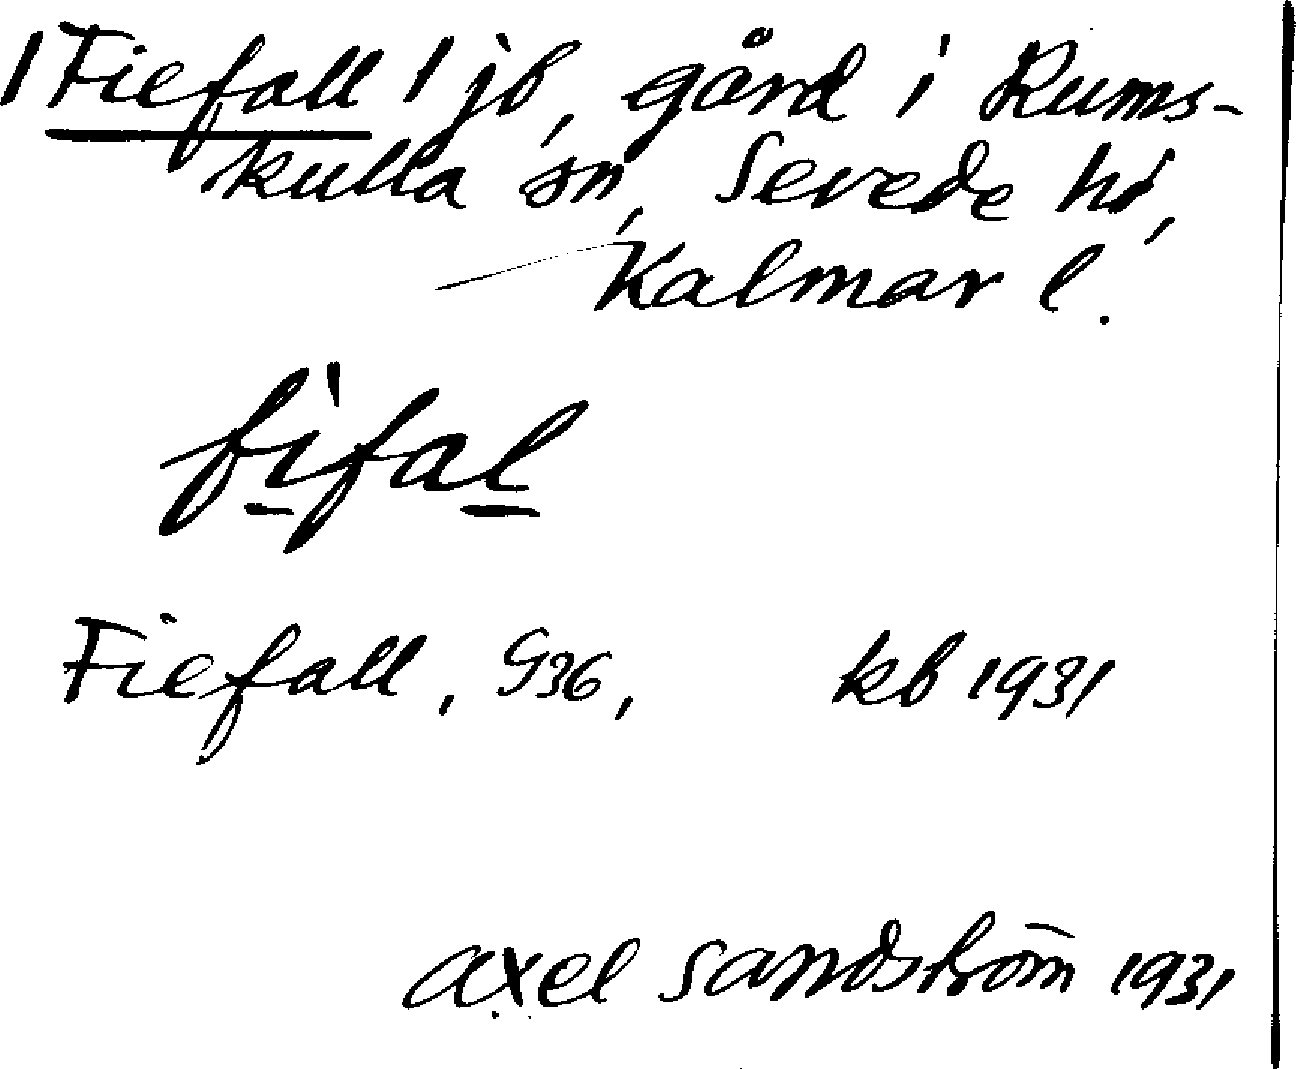 /Fiefall/ jb, gård i Rums-
kulla sn, Sevede hd,
Kalmar l.
fìfal
Fiefall, G36, kb 1931
Axel Sandström 1931